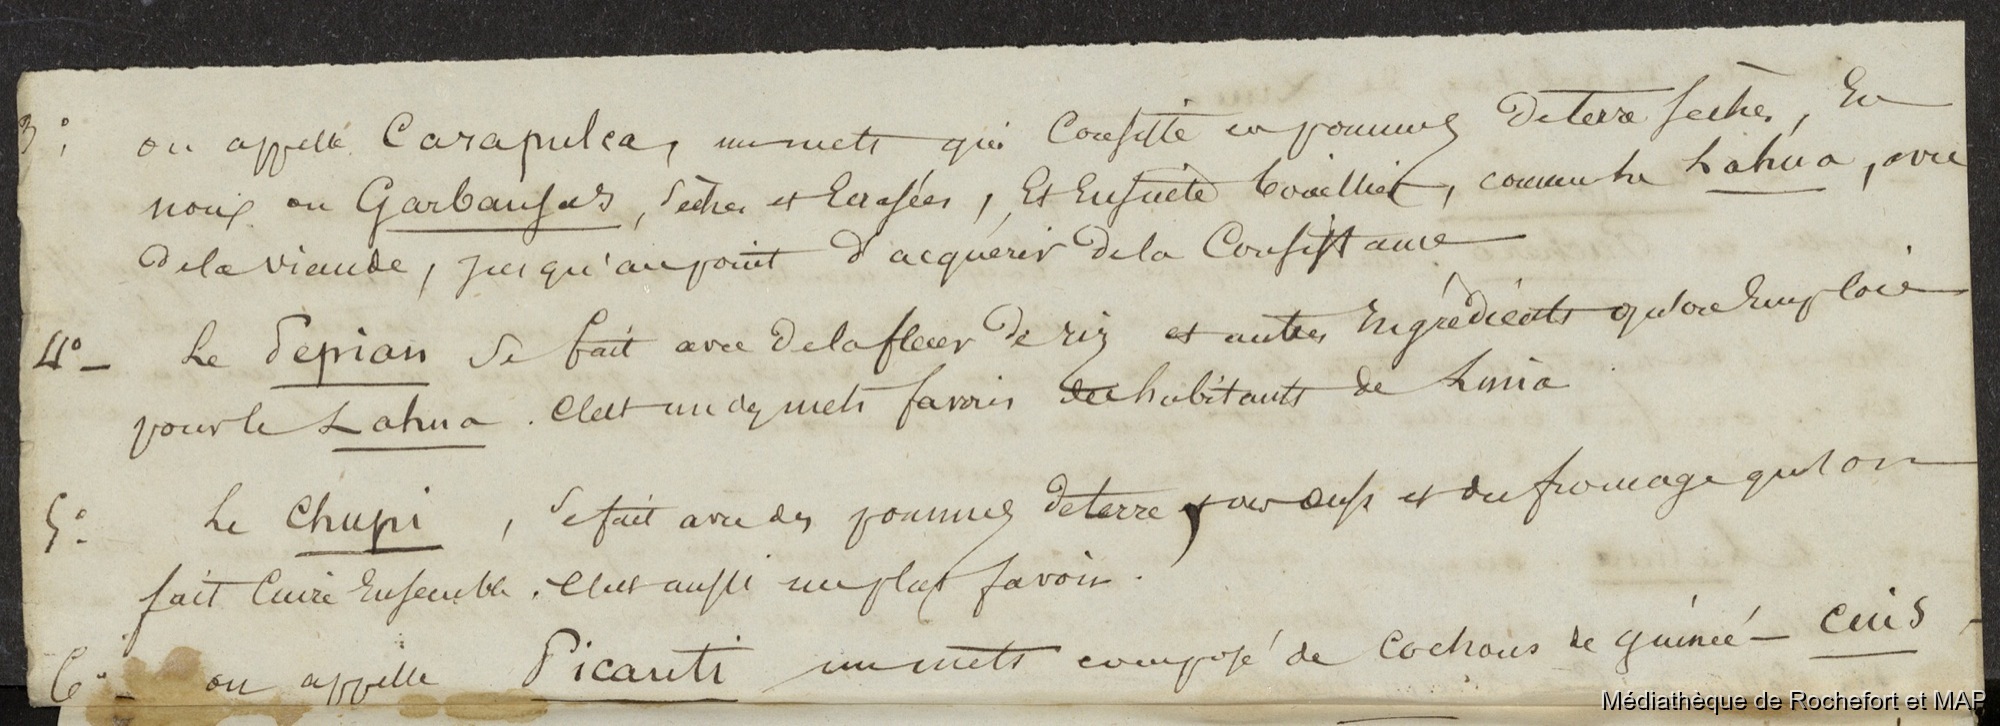 3° on appelle Carapulca, un mets qui Consiste en pommes de terre seches, En
noix ou Garbansas, sèches et Ecrasées, Et Ensuite bouillies, comme le Lahua, avec
de la viande, jusqu'au point d'acquérir de la Consistance
4° - Le Pepian se fait avec de la fleur de riz et autres Ingrédients qu'on Emploie
pour le Lahua. C'est un des mets favoris des habitants de Lima
5° Le Chupi, se fait avec des pommes de terre, œufs et du fromage qu'on
fait Cuire Ensemble. C'est aussi un plat favori.
6° - on appelle Picanti un mets composé de Cochons de guinée - Cuis
Médiathèque de Rochefort et MAP